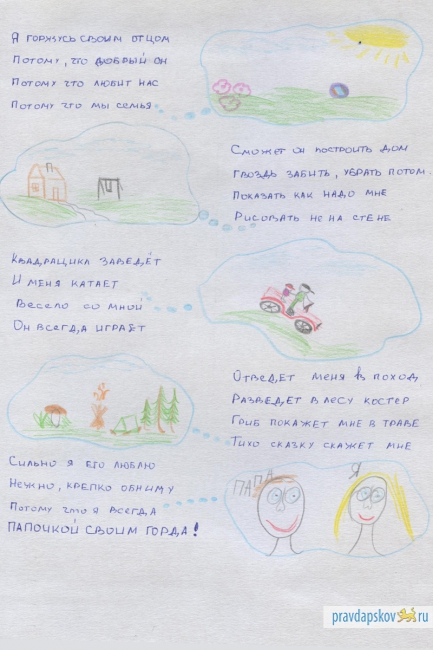 Я горжусь своим отцом
Потому, что добрый он
Потому что любит нас
Потому что мы семья
Сможет он построить дом
Гвоздь забить, убрать потом.
Показать как надо мне
Рисовать не на стене
Квадрацикл заведёт
И меня катает
Весело со мной
Он всегда играет
Отведет меня в поход
Разведет в лесу костер
Гриб покажет мне в траве
Тихо сказку скажет мне
Сильно я его люблю
Нежно, крепко обниму
Потому что я всегда
Папочкой своим горда!
ПАПА
Я
pravdapskov.ru